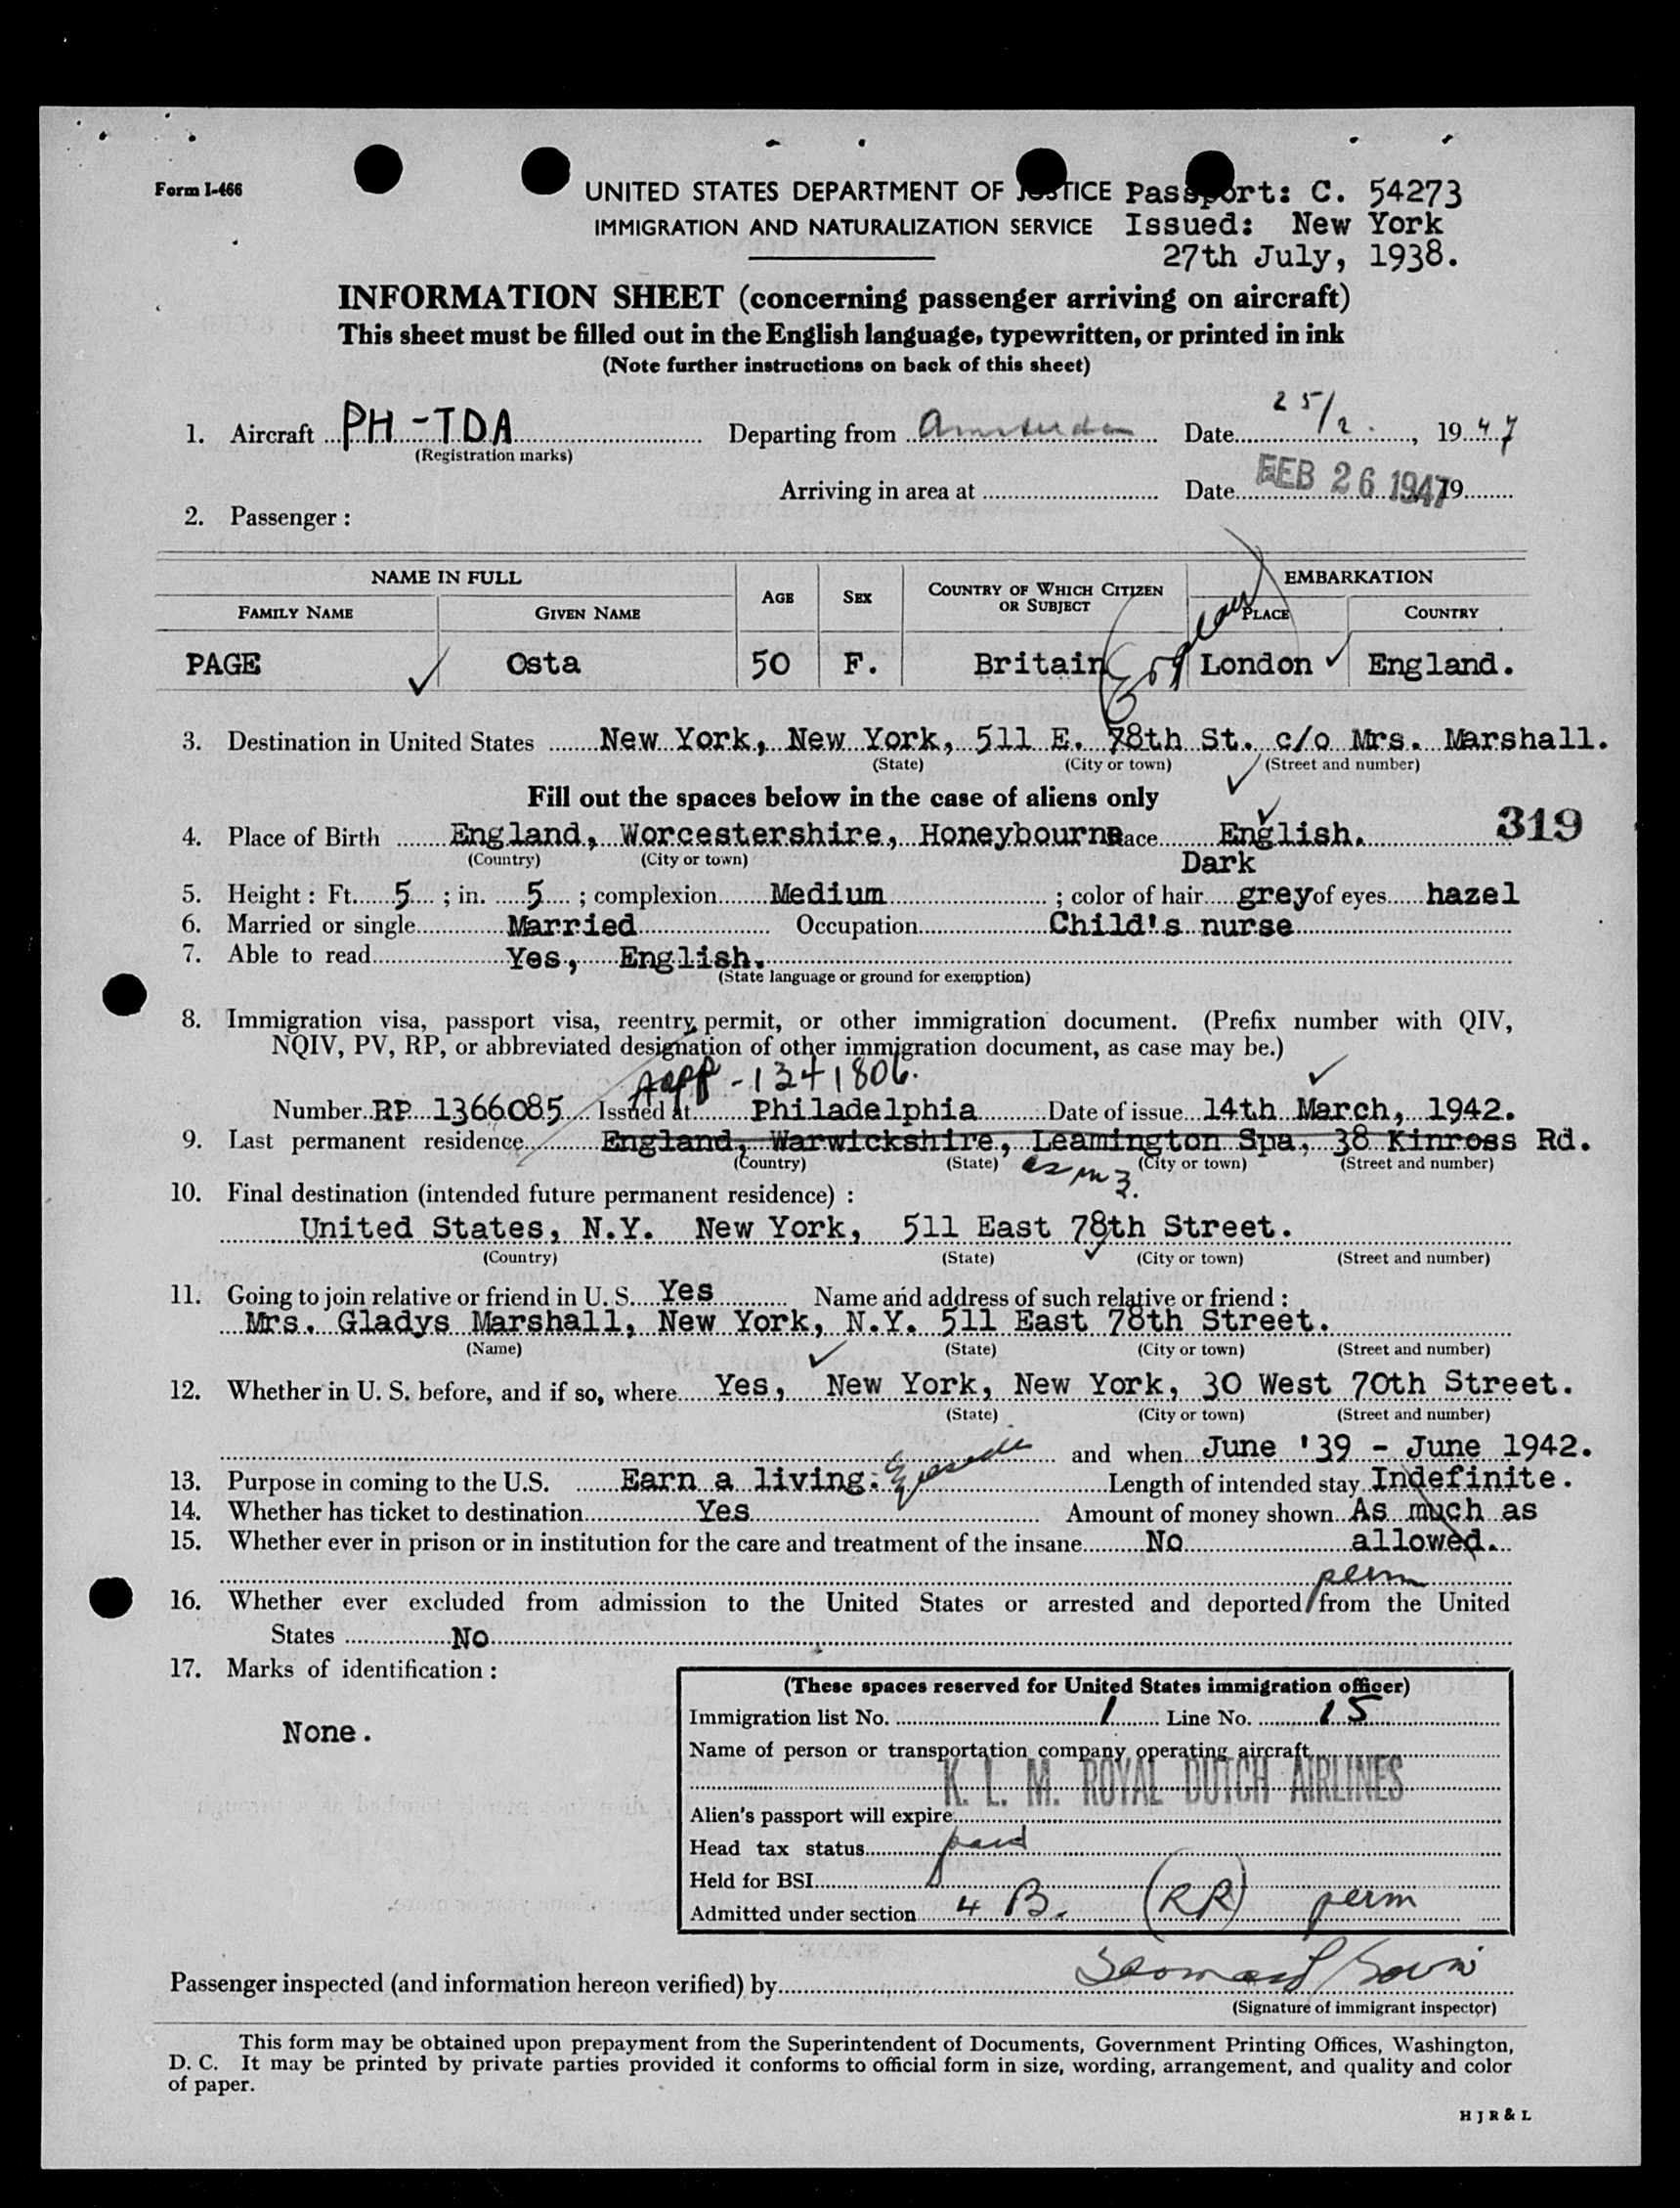 Form I-466
UNITED STATES DEPARTMENT OF JUSTICE Passport: C. 54273
IMMIGRATION AND NATURALIZATION SERVICE Issued: New York
27th July, 1938.
INFORMATION SHEET (concerning passenger arriving on aircraft)
This sheet must be filled out in the English language, typewritten, or printed in ink
(Note further instructions on back of this sheet)
1. Aircraft PH-TDA Departing from Amsterdam Date 25/2. , 1947
(Registration marks)
Arriving in area at Date FEB 26 1947 19
2. Passenger :
NAME IN FULL EMBARKATION
AGE SEX COUNTRY OF WHICH CITIZEN OR SUBJECT
FAMILY NAME GIVEN NAME PLACE COUNTRY
PAGE Osta 50 F. Britain London England.
3. Destination in United States New York, New York, 511 E. 78th St. c/o Mrs. Marshall.
(State) (City or town) (Street and number)
Fill out the spaces below in the case of aliens only
319
4. Place of Birth England, Worcestershire, Honeybourne Race English.
(Country) (City or town)
Dark
5. Height : Ft. 5 ; in. 5 ; complexion Medium ; color of hair grey of eyes hazel
6. Married or single Married Occupation Child's nurse
7. Able to read Yes, English.
(State language or ground for exemption)
8. Immigration visa, passport visa, reentry permit, or other immigration document. (Prefix number with QIV,
NQIV, PV, RP, or abbreviated designation of other immigration document, as case may be.)
Appp - 1341806.
Number RP 1366085 Issued at Philadelphia Date of issue 14th March, 1942.
9. Last permanent residence England, Warwickshire, Leamington Spa, 38 Kinross Rd.
(Country) (State) (City or town) (Street and number)
as in 3.
10. Final destination (intended future permanent residence) :
United States, N.Y. New York, 511 East 78th Street.
(Country) (State) (City or town) (Street and number)
11. Going to join relative or friend in U. S. Yes Name and address of such relative or friend :
Mrs. Gladys Marshall, New York, N.Y. 511 East 78th Street.
(Name) (State) (City or town) (Street and number)
12. Whether in U. S. before, and if so, where Yes, New York, New York, 30 West 70th Street.
(State) (City or town) (Street and number)
and when June '39 - June 1942.
13. Purpose in coming to the U.S. Earn a living. Length of intended stay Indefinite.
14. Whether has ticket to destination Yes Amount of money shown As much as
15. Whether ever in prison or in institution for the care and treatment of the insane No allowed.
perm
16. Whether ever excluded from admission to the United States or arrested and deported from the United
States No
17. Marks of identification :
None.
(These spaces reserved for United States immigration officer)
Immigration list No. 1 Line No. 15
Name of person or transportation company operating aircraft
K. L. M. ROYAL DUTCH AIRLINES
Alien's passport will expire
Head tax status paid
Held for BSI
Admitted under section 4 B. (RR) perm
Passenger inspected (and information hereon verified) by
(Signature of immigrant inspector)
This form may be obtained upon prepayment from the Superintendent of Documents, Government Printing Offices, Washington,
D. C. It may be printed by private parties provided it conforms to official form in size, wording, arrangement, and quality and color
of paper.
H J R & L